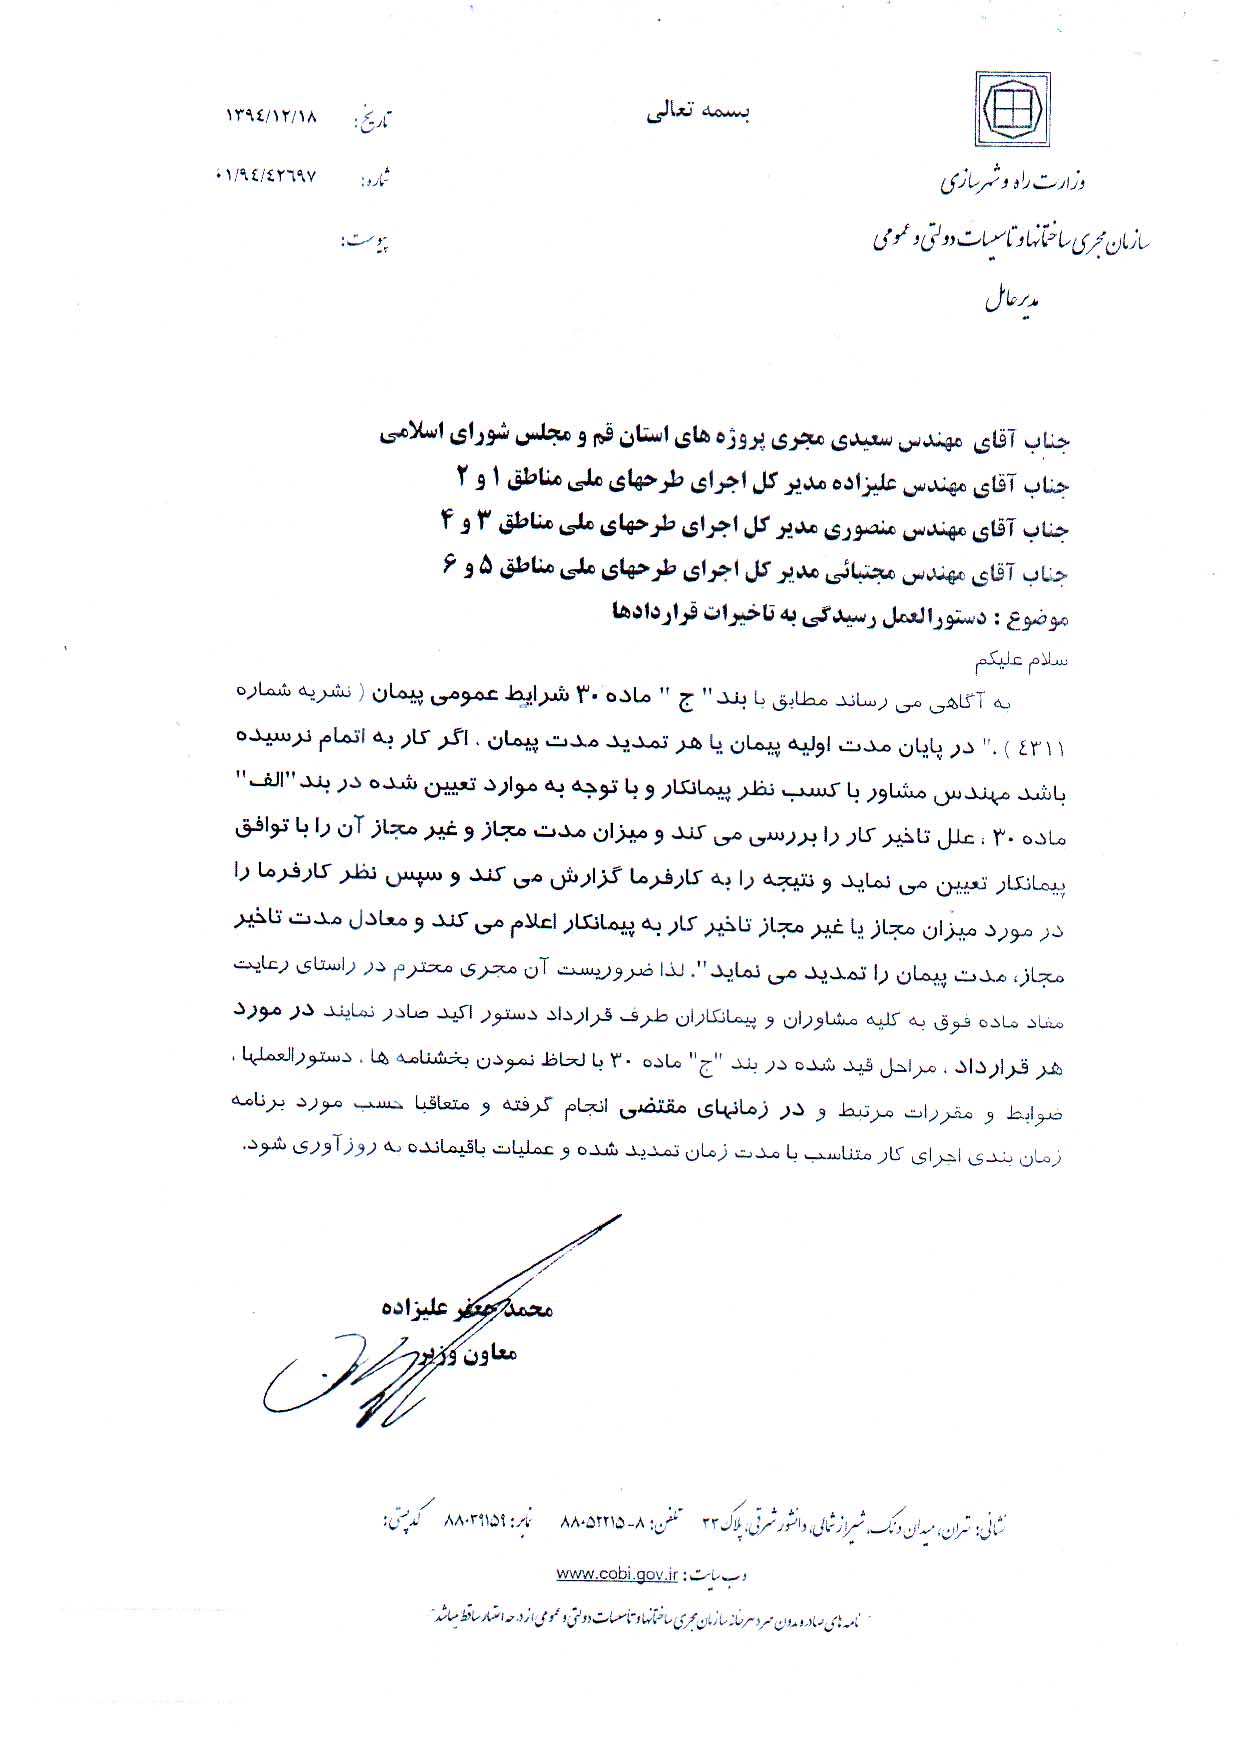 بسمه تعالی
وزارت راه و شهرسازی
سازمان مجری ساختمانها و تاسیسات دولتی و عمومی
مدیرعامل
تاریخ: ۱۳۹٤/۱۲/۱۸
شماره: ۰۱/۹٤/٤۲٦۹۷
پیوست:
جناب آقای مهندس سعیدی مجری پروژه های استان قم و مجلس شورای اسلامی
جناب آقای مهندس علیزاده مدیر کل اجرای طرحهای ملی مناطق ۱ و ۲
جناب آقای مهندس منصوری مدیر کل اجرای طرحهای ملی مناطق ۳ و ۴
جناب آقای مهندس مجتبائی مدیر کل اجرای طرحهای ملی مناطق ۵ و ۶
موضوع : دستورالعمل رسیدگی به تاخیرات قراردادها
سلام علیکم
به آگاهی می رساند مطابق با بند" ج " ماده ۳۰ شرایط عمومی پیمان ( نشریه شماره
٤۳۱۱ ) ." در پایان مدت اولیه پیمان یا هر تمدید مدت پیمان ، اگر کار به اتمام نرسیده
باشد مهندس مشاور با کسب نظر پیمانکار و با توجه به موارد تعیین شده در بند"الف"
ماده ۳۰ ، علل تاخیر کار را بررسی می کند و میزان مدت مجاز و غیر مجاز آن را با توافق
پیمانکار تعیین می نماید و نتیجه را به کارفرما گزارش می کند و سپس نظر کارفرما را
در مورد میزان مجاز یا غیر مجاز تاخیر کار به پیمانکار اعلام می کند و معادل مدت تاخیر
مجاز، مدت پیمان را تمدید می نماید". لذا ضروریست آن مجری محترم در راستای رعایت
مفاد ماده فوق به کلیه مشاوران و پیمانکاران طرف قرارداد دستور اکید صادر نمایند در مورد
هر قرارداد ، مراحل قید شده در بند "ج" ماده ۳۰ با لحاظ نمودن بخشنامه ها ، دستورالعملها ،
ضوابط و مقررات مرتبط و در زمانهای مقتضی انجام گرفته و متعاقبا حسب مورد برنامه
زمان بندی اجرای کار متناسب با مدت زمان تمدید شده و عملیات باقیمانده به روزآوری شود.
محمد جعفر علیزاده
معاون وزیر
نشانی: تهران، میدان ونک، شیراز شمالی، دانشور شرقی، پلاک ۲۳ تلفن: ۸-۸۸۰۵۲۲۱۵ نمابر: ۸۸۰۳۹۱۵۹ کدپستی:
وب سایت : www.cobi.gov.ir
"نامه های صادره بدون مهر دبیرخانه سازمان مجری ساختمانها و تاسیسات دولتی و عمومی از درجه اعتبار ساقط میباشد"